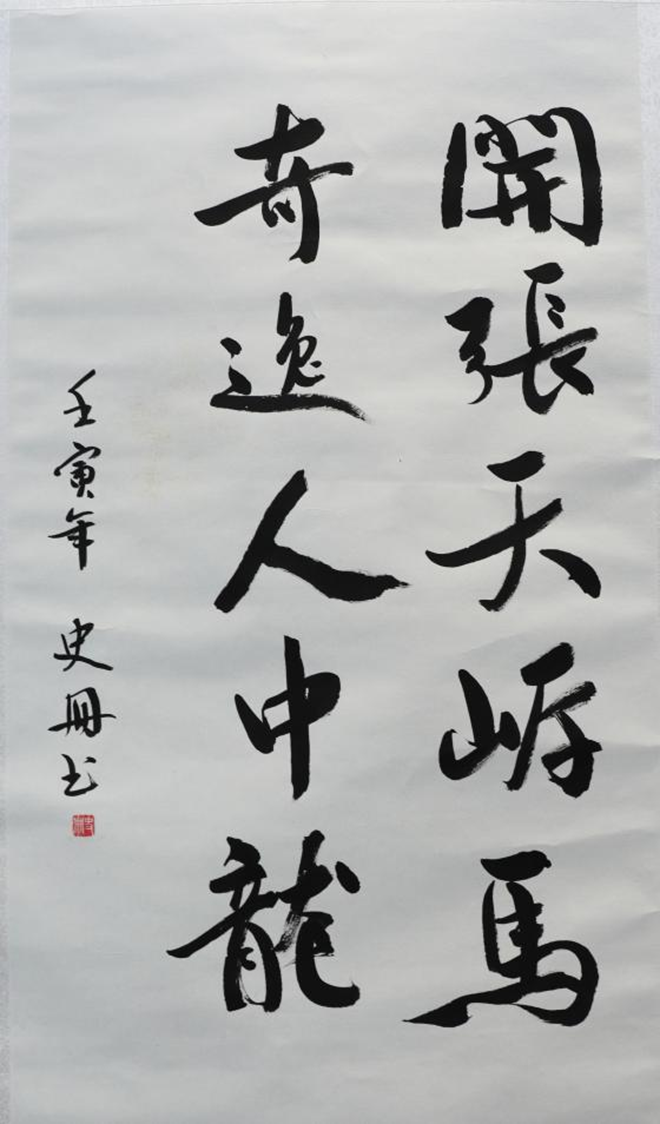 開張天岸馬
奇逸人中龍
壬寅年 史冊书